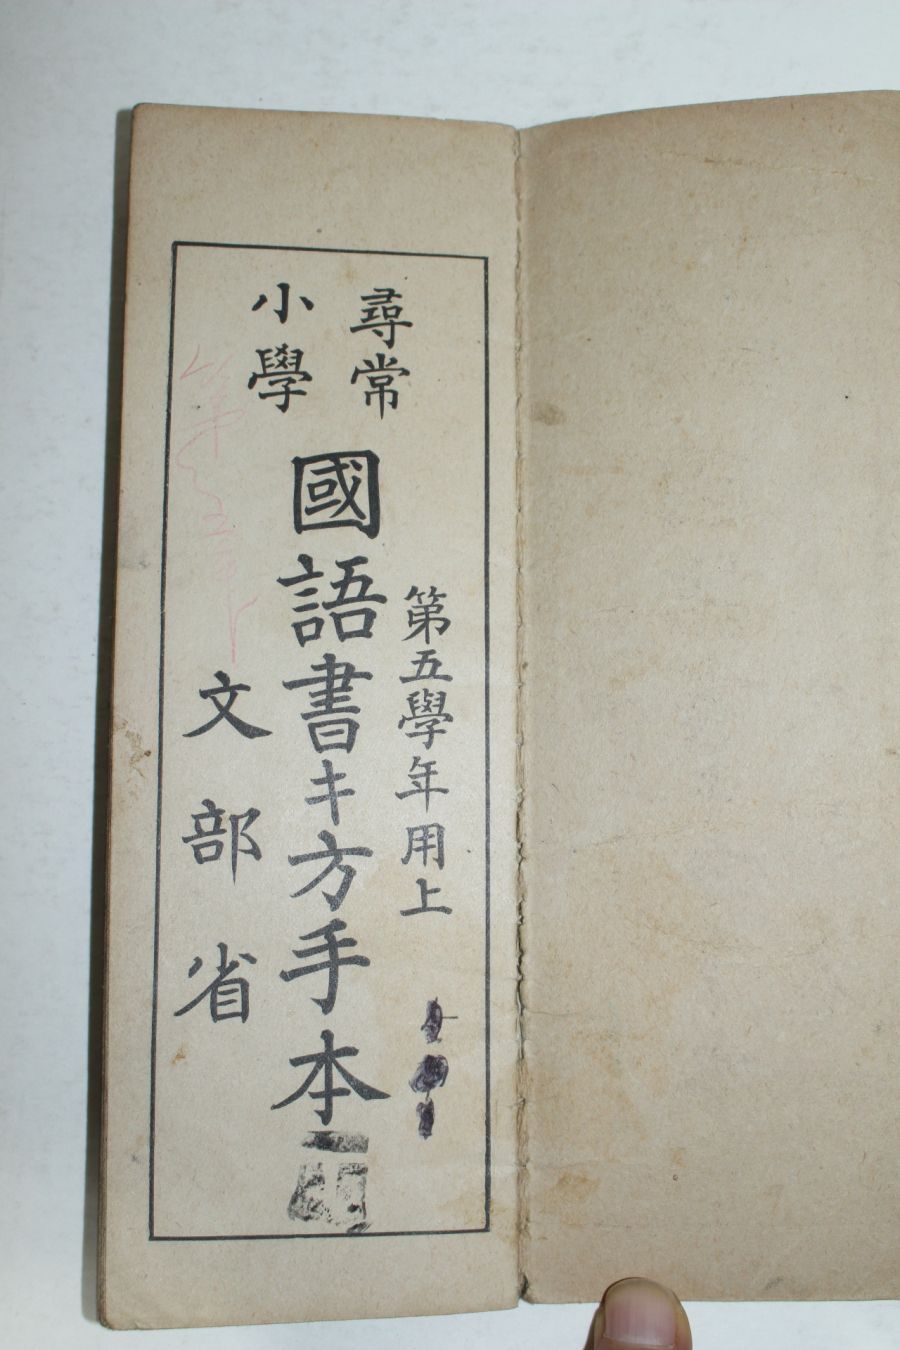 第五學年用上
尋常
小學
國語書キ方手本
文部省